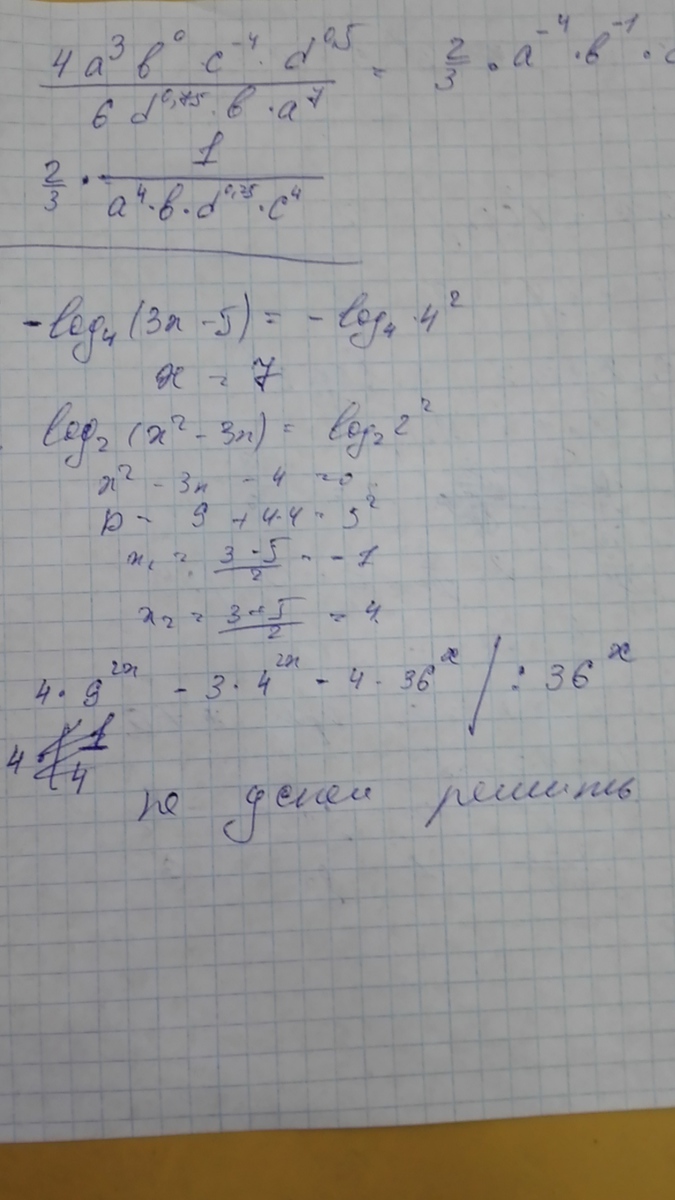 4a³ в⁰ · c⁻⁴ · d⁰,⁵ / 6 d⁰,⁷⁵ · в · a⁷ = 2/3 · a⁻⁴ · в⁻¹ · c
2/3 · 1 / a⁴ · в · d⁰,²⁵ · c⁴
-log₄ (3x - 5) = - log₄ · 4²
x = 7
log₂ (x² - 3x) = log₂ 2²
x² - 3x - 4 = 0
D = 9 + 4·4 = 5²
x₁ = 3 - 5 / 2 = - 1
x₂ = 3 + 5 / 2 = 4
4 · 9²ˣ - 3 · 4²ˣ - 4 · 36ˣ / : 36ˣ
4
не успел решить